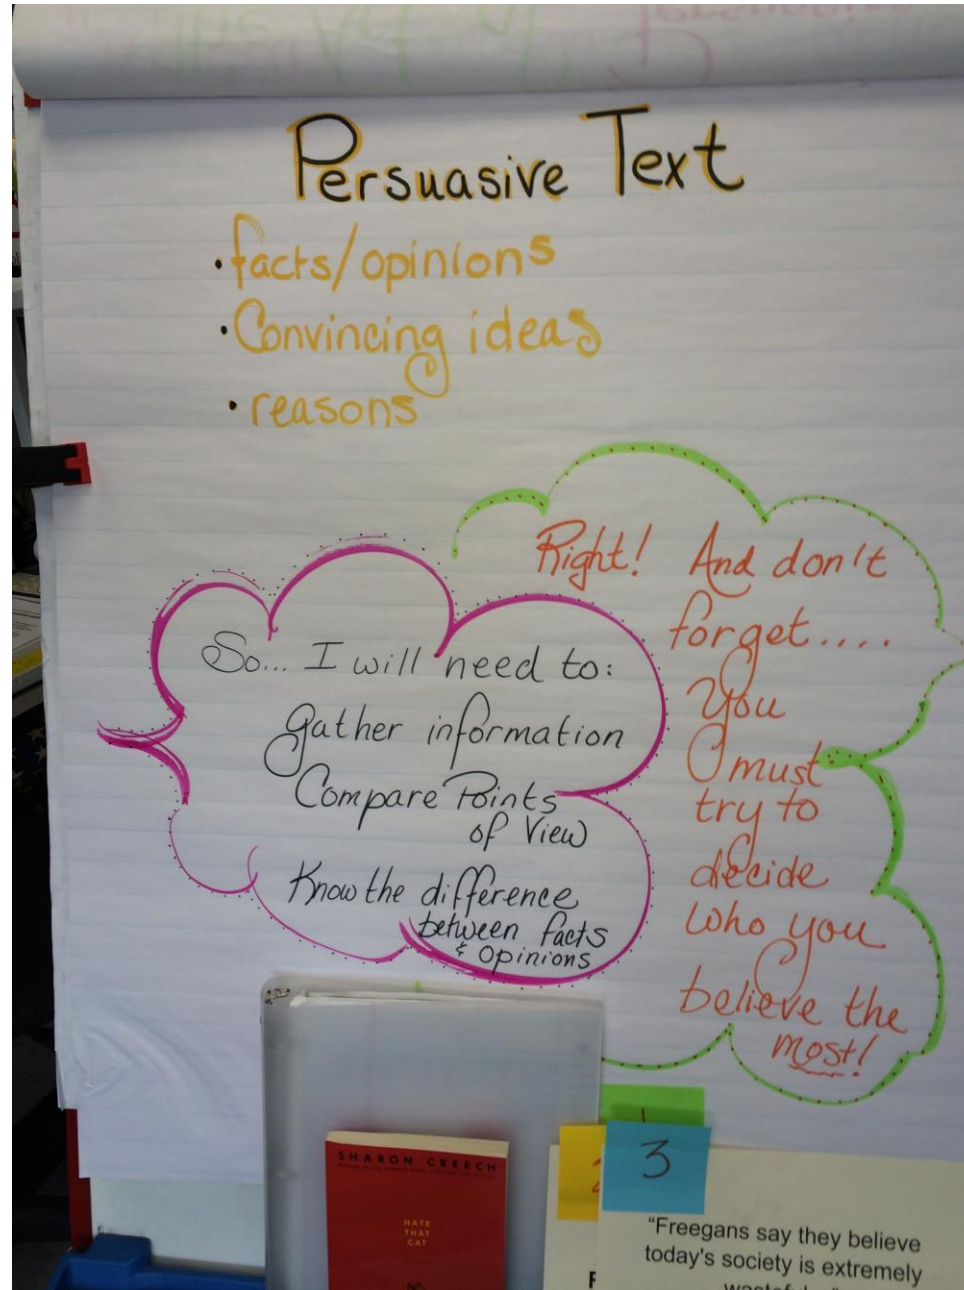 Persuasive Text
· facts/opinions
· Convincing ideas
· reasons
So... I will need to:
gather information
Compare Points
of View
Know the difference
between facts
& Opinions
Right! And don't
forget....
You
must
try to
decide
who you
believe the
most!
SHARON CREECH
HATE
THAT
CAT
1
2
3
"Freegans say they believe
today's society is extremely
F